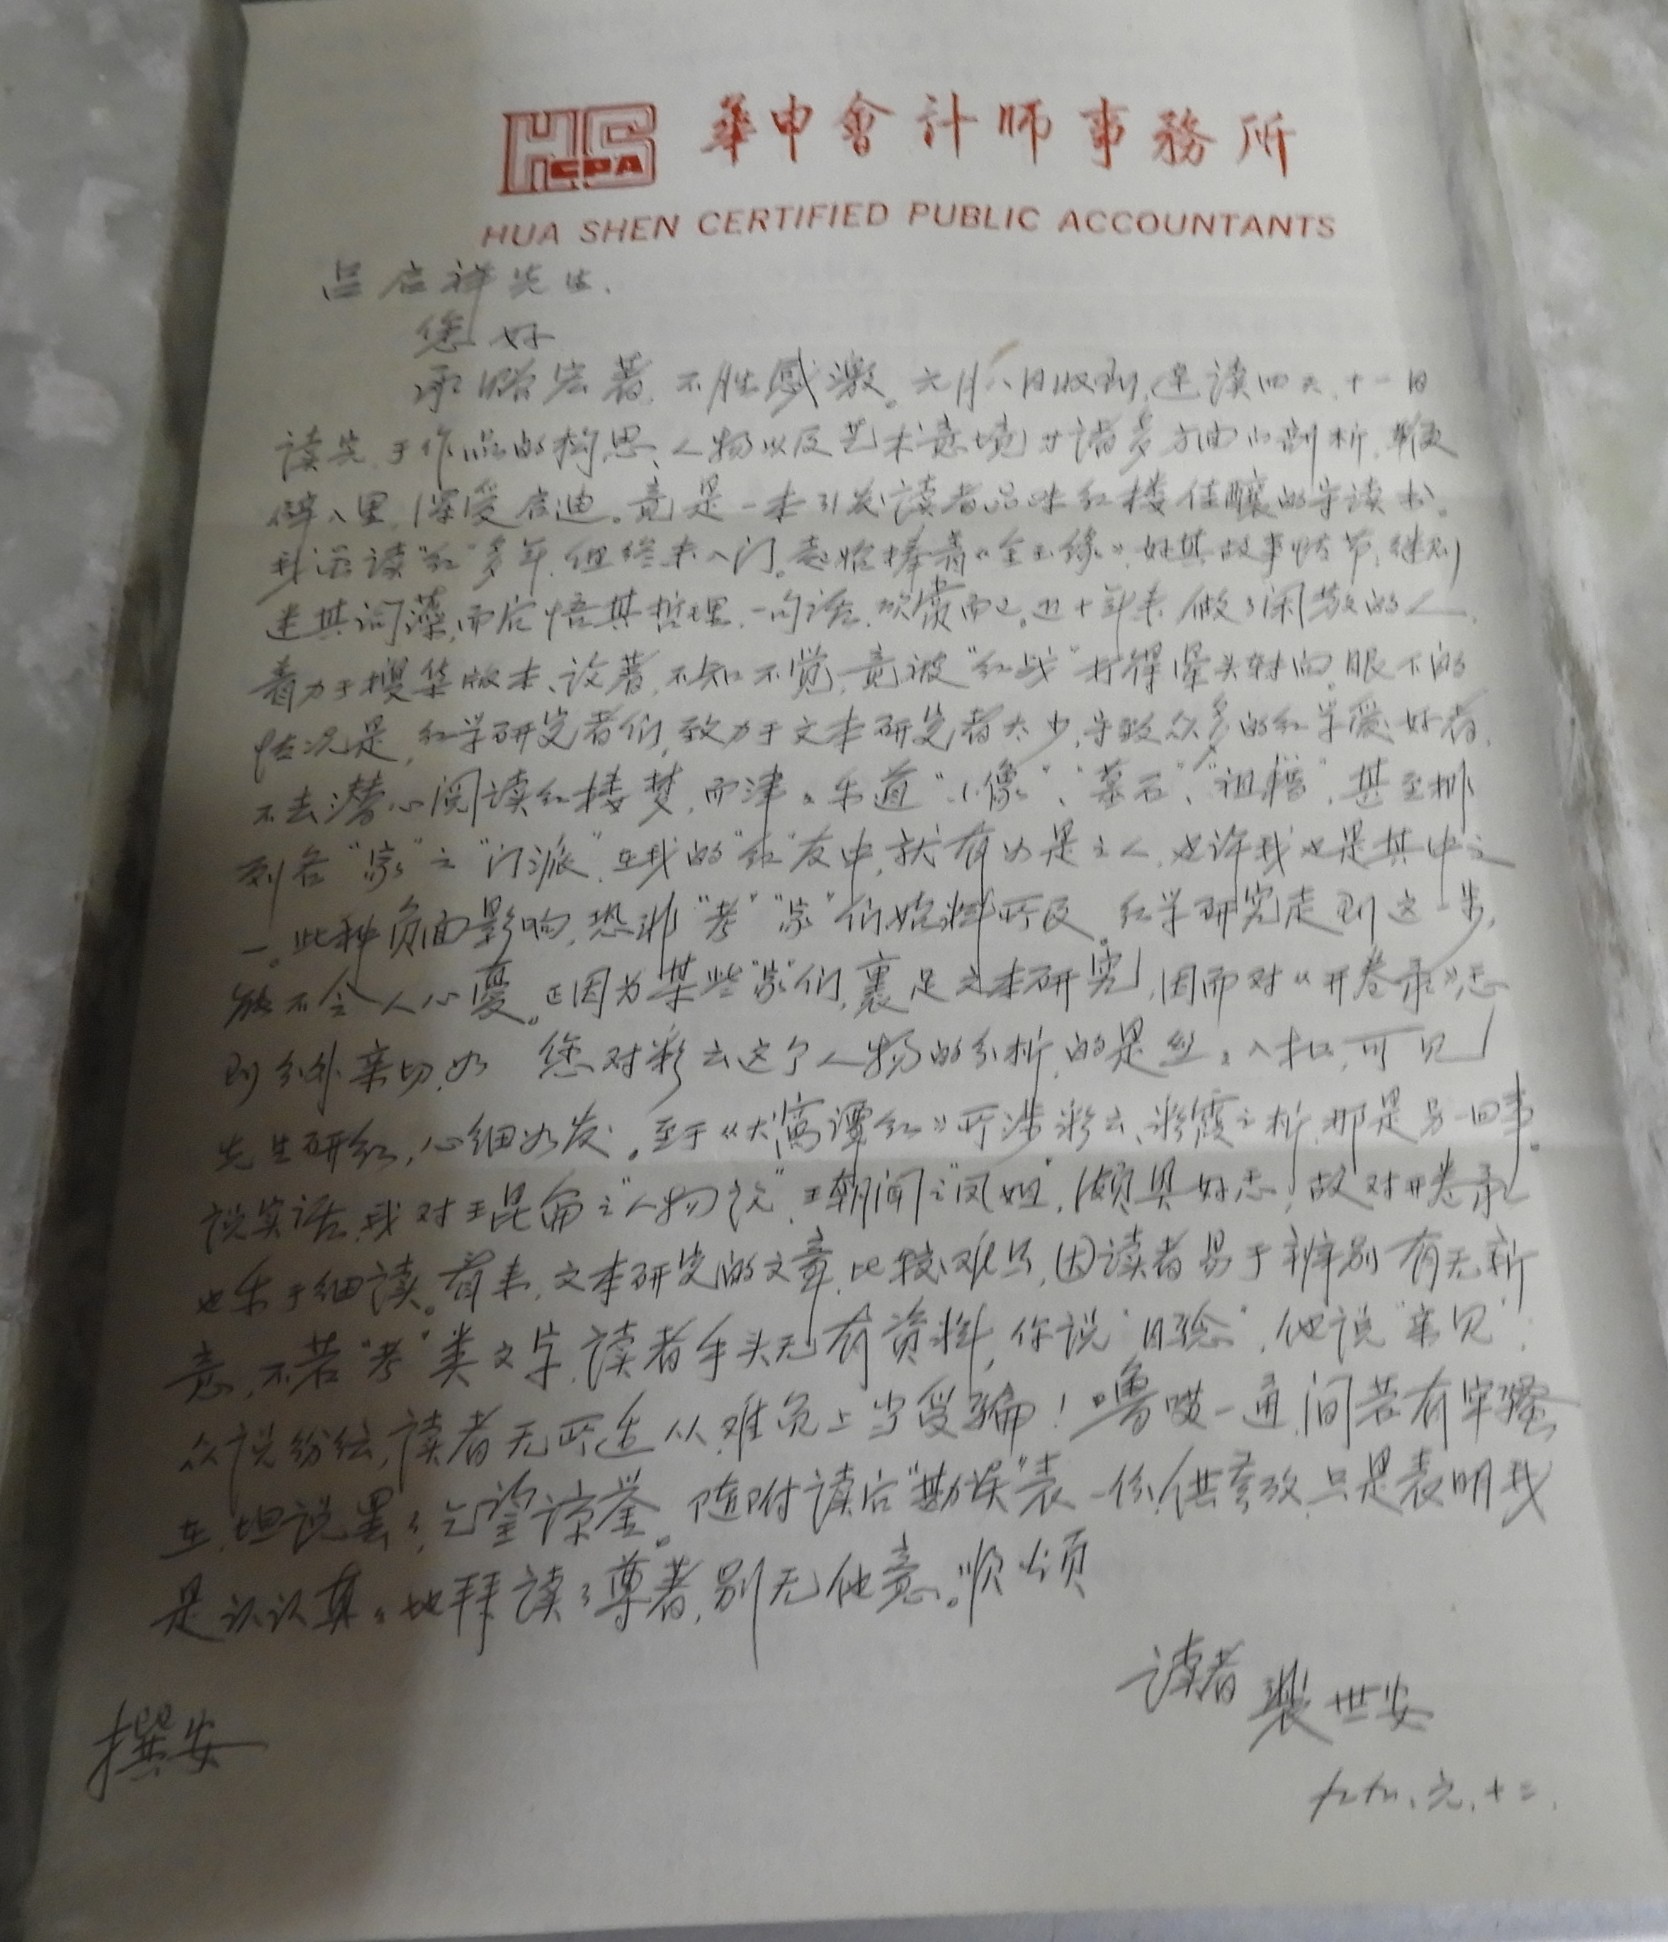 HS CPA 華申會計師事務所
HUA SHEN CERTIFIED PUBLIC ACCOUNTANTS
吕启祥先生、
您好
承赐宏著,不胜感激。六月八日收到,连读四天,十一日
读完,于作品的构思、人物以及艺术意境廿诸多方面的剖析,鞭
僻入里,深受启迪。竟是一本引发读者品味红楼佳酿的导读书。
我泛读“红”多年,但终未入门。起始捧着《金玉缘》,好其故事情节,继则
迷其词藻,而后悟其哲理,一句话,欣赏而已。近十年来,做了闲散的人,
着力于搜集版本、论著,不知不觉,竟被“红战”打得晕头转向。眼下的
情况是,红学研究者们,致力于文本研究者太少,导致众多的红学爱好者,
不去潜心阅读红楼梦,而津々乐道“小像”、“墓石”、“祖籍”,甚至排
列各“家”之“门派”,在我的“红”友中,就有如是之人,也许我也是其中之
一。此种负面影响,恐非“考”“家”们始料所及。红学研究走到这一步,
能不令人心忧。正因为某些“家”们,裹足文本研究,因而对《开卷录》忐
到分外亲切,如 您对彩云这个人物的分析,的是丝々入扣,可见
先生研红,心细如发。至于《大窩谭红》所涉彩云、彩霞之析,那是另一回事。
说实话,我对王昆仑之“人物论”,王朝闻之“凤姐”,颇具好感,故对开卷录
也乐于细读。看来,文本研究的文章,比较难写,因读者易于辨别有无新
意,不若“考”类文字,读者手头无有资料,你说“目验”,他说“亲见”,
众说纷纭,读者无所适从,难免上当受骗!噜嗦一通,间若有牢骚
在,坦说罢了,乞望谅詧。随附读后“勘误”表一份,供参考,只是表明我
是认认真々地拜读了尊著,别无他意。顺颂
撰安
读者 裴世安
九九、六、十二、